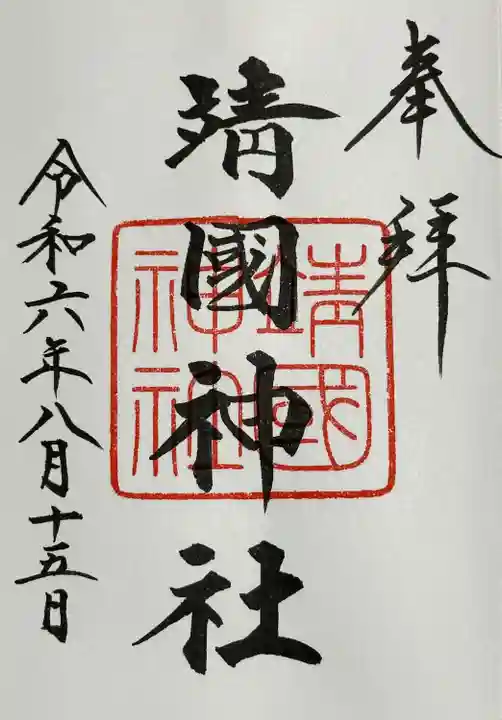 奉拝
靖國神社
靖國神社
令和六年八月十五日